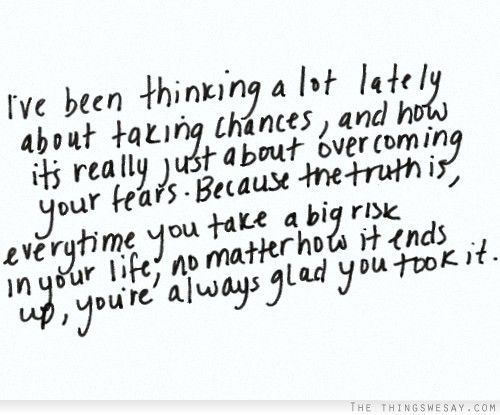 I've been thinking a lot lately
about taking chances, and how
it's really just about overcoming
your fears. Because the truth is,
everytime you take a big risk
in your life, no matter how it ends
up, you're always glad you took it.
THE THINGSWESAY.COM